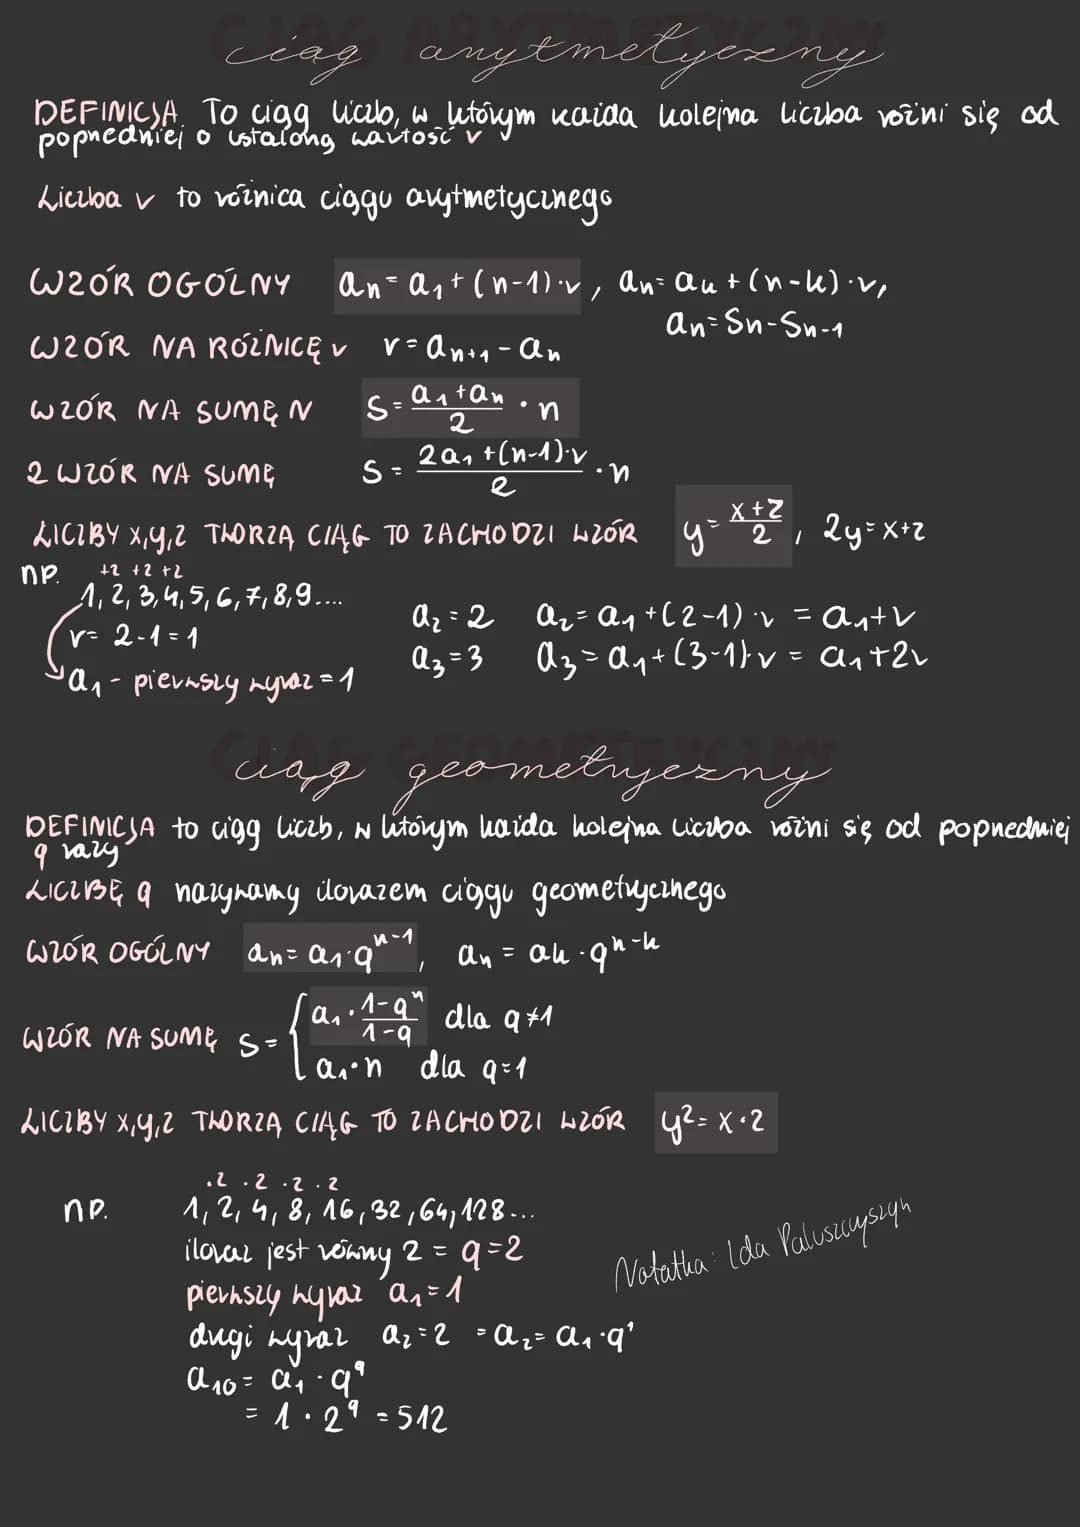 ciąg arytmetyczny
DEFINICJA To ciąg liczb, w którym każda kolejna liczba różni się od
poprzedniej o ustaloną wartość r
Liczba r to różnica ciągu arytmetycznego
WZÓR OGÓLNY an = a1 + (n-1)·r, an = ak + (n-k)·r,
an = Sn - Sn-1
WZÓR NA RÓŻNICĘ r r = an+1 - an
WZÓR NA SUMĘ N S = (a1 + an)/2 · n
2 WZÓR NA SUMĘ S = (2a1 + (n-1)·r)/2 · n
LICZBY x,y,z TWORZĄ CIĄG TO ZACHODZI WZÓR y = (x+z)/2, 2y = x+z
np. +2 +2 +2
1, 2, 3, 4, 5, 6, 7, 8, 9....
r = 2-1 = 1
a1 - pierwszy wyraz = 1
a2 = 2 a2 = a1 + (2-1)·r = a1 + r
a3 = 3 a3 = a1 + (3-1)·r = a1 + 2r
ciąg geometryczny
DEFINICJA to ciąg liczb, w którym każda kolejna liczba różni się od poprzedniej
q razy
LICZBĘ q nazywamy ilorazem ciągu geometrycznego
WZÓR OGÓLNY an = a1·q^n-1, an = ak·q^n-k
WZÓR NA SUMĘ S = { a1 · (1-q^n)/(1-q) dla q≠1
a1·n dla q=1
LICZBY x,y,z TWORZĄ CIĄG TO ZACHODZI WZÓR y² = x·z
·2 ·2 ·2 ·2
np. 1, 2, 4, 8, 16, 32, 64, 128...
iloraz jest równy 2 = q=2
pierwszy wyraz a1 = 1
drugi wyraz a2 = 2 = a2 = a1·q¹
a10 = a1 · q⁹
= 1 · 2⁹ = 512
Notatka: Ida Paluszczyszyn